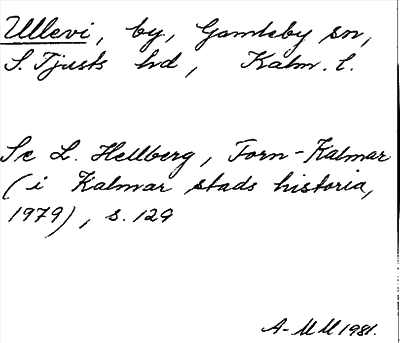 Ullevi, by, Gamleby sn,
S. Tjusts hd, Kalm. l.
Se L. Hellberg, Forn-Kalmar
(i Kalmar stads historia,
1979), s. 129
A-MM 1981.